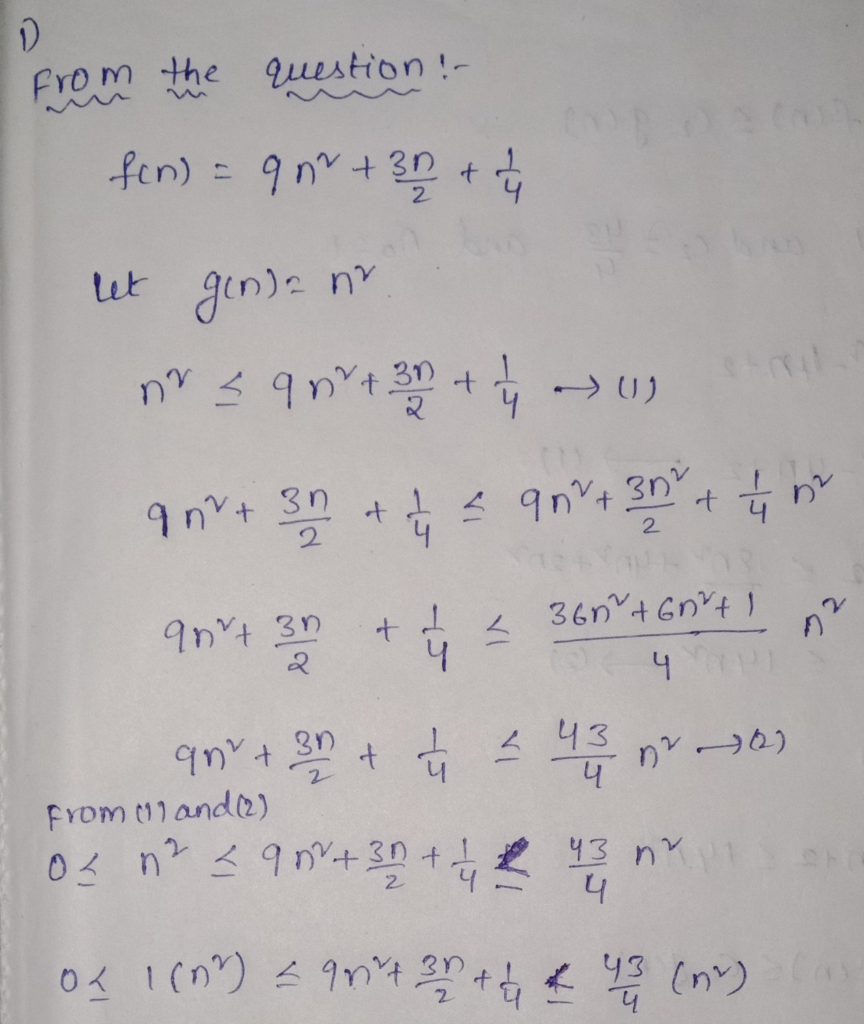 1)
From the question :-
f(n) = 9n² + 3n/2 + 1/4
let g(n) = n²
n² ≤ 9n² + 3n/2 + 1/4 → (1)
9n² + 3n/2 + 1/4 ≤ 9n² + 3n²/2 + 1/4 n²
9n² + 3n/2 + 1/4 ≤ (36n² + 6n² + 1)/4 n²
9n² + 3n/2 + 1/4 ≤ 43/4 n² → (2)
From (1) and (2)
0 ≤ n² ≤ 9n² + 3n/2 + 1/4 ≤ 43/4 n²
0 ≤ 1(n²) ≤ 9n² + 3n/2 + 1/4 ≤ 43/4 (n²)